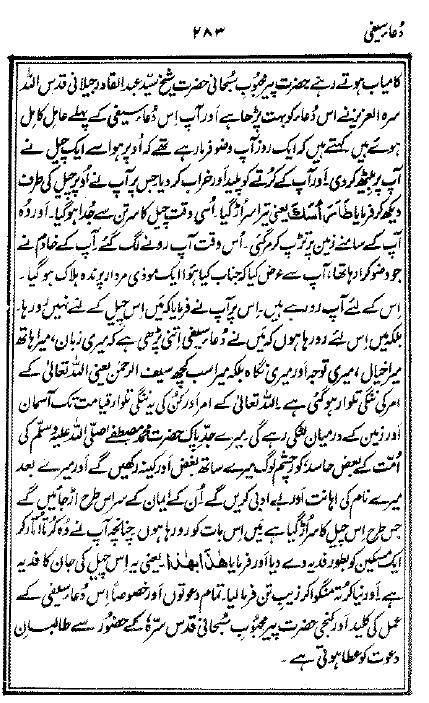 دُعا سیفی ۲۸۳
کامیاب ہوتے رہے حضرت پیر محبوب سُبحانی حضرت شیخ سیّد عبدالقادر جیلانی قدس اللہ
سرہ العزیز نے اس دُعا کو بہت پڑھا ہے اور آپ اِس دُعا سیفی کے پہلے عامل کامل
ہوئے ہیں۔ کہتے ہیں کہ ایک روز آپ وضو فرما رہے تھے کہ اُوپر ہوا سے ایک چیل نے
آپ پر بیٹھ کر دی۔ اور آپ کے کُرتے کو پلید اور خراب کر دیا جس پر آپ نے اُوپر چیل کی طرف
دیکھ کر فرمایا طَاسَ اُسُكَ یعنی تیرا سر اُڑ گیا۔ اُسی وقت چیل کا سر تن سے جُدا ہو گیا۔ اور وُہ
آپ کے سامنے زمین پر تڑپ کر مر گئی۔ اُس وقت آپ رونے لگ گئے۔ آپ کے خادم نے
جو وضو کرا رہا تھا، آپ سے عرض کیا کہ جناب کیا ہوا ایک موذی مردار پرندہ ہلاک ہو گیا۔
اِس کے لئے آپ رو رہے ہیں۔ اِس پر آپ نے فرمایا کہ میں اِس چیل کے لئے نہیں رو رہا۔
بلکہ میں اِس لئے رو رہا ہوں کہ میں نے دُعا سیفی اِتنی پڑھی ہے کہ میری زبان، میرا ہاتھ
میرا خیال، میری توجہ اور میری نگاہ بلکہ میرا سب کچھ سیف الرحمٰن یعنی اللہ تعالیٰ کے
امر کی ننگی تلوار ہو گئی ہے۔ اللہ تعالیٰ کے امر اور کُن کی یہ ننگی تلوار قیامت تک آسمان
اور زمین کے درمیان لٹکی رہے گی۔ میرے جدِّ پاک حضرت محمد مصطفےٰ صلی اللہ علیہ وسلم کی
اُمّت کے بعض حاسد کور چشم لوگ میرے ساتھ بغض اور کینہ رکھیں گے اور میرے بعد
میرے نام کی اہانت اور بے ادبی کریں گے اُن کے ایمان کے سر اس طرح اُڑ جائیں گے
جس طرح اِس چیل کا سر اُڑ گیا ہے میں اِس بات کو رو رہا ہوں چنانچہ آپ نے وُہ کُرتا اُتار کر
ایک مسکین کو بطور فدیہ دے دیا اور فرمایا ھٰذا بھٰذا یعنی یہ اِس چیل کی جان کا فدیہ
ہے اور نیا کرتہ منگوا کر زیبِ تن فرما لیا۔ تمام دعوتوں اور خصوصاً اِس دُعا سیفی کے
عمل کی کلید اور کنجی حضرت پیر محبوب سُبحانی قدس سرّہٗ کے حضور سے طالبانِ
دعوت کو عطا ہوتی ہے۔